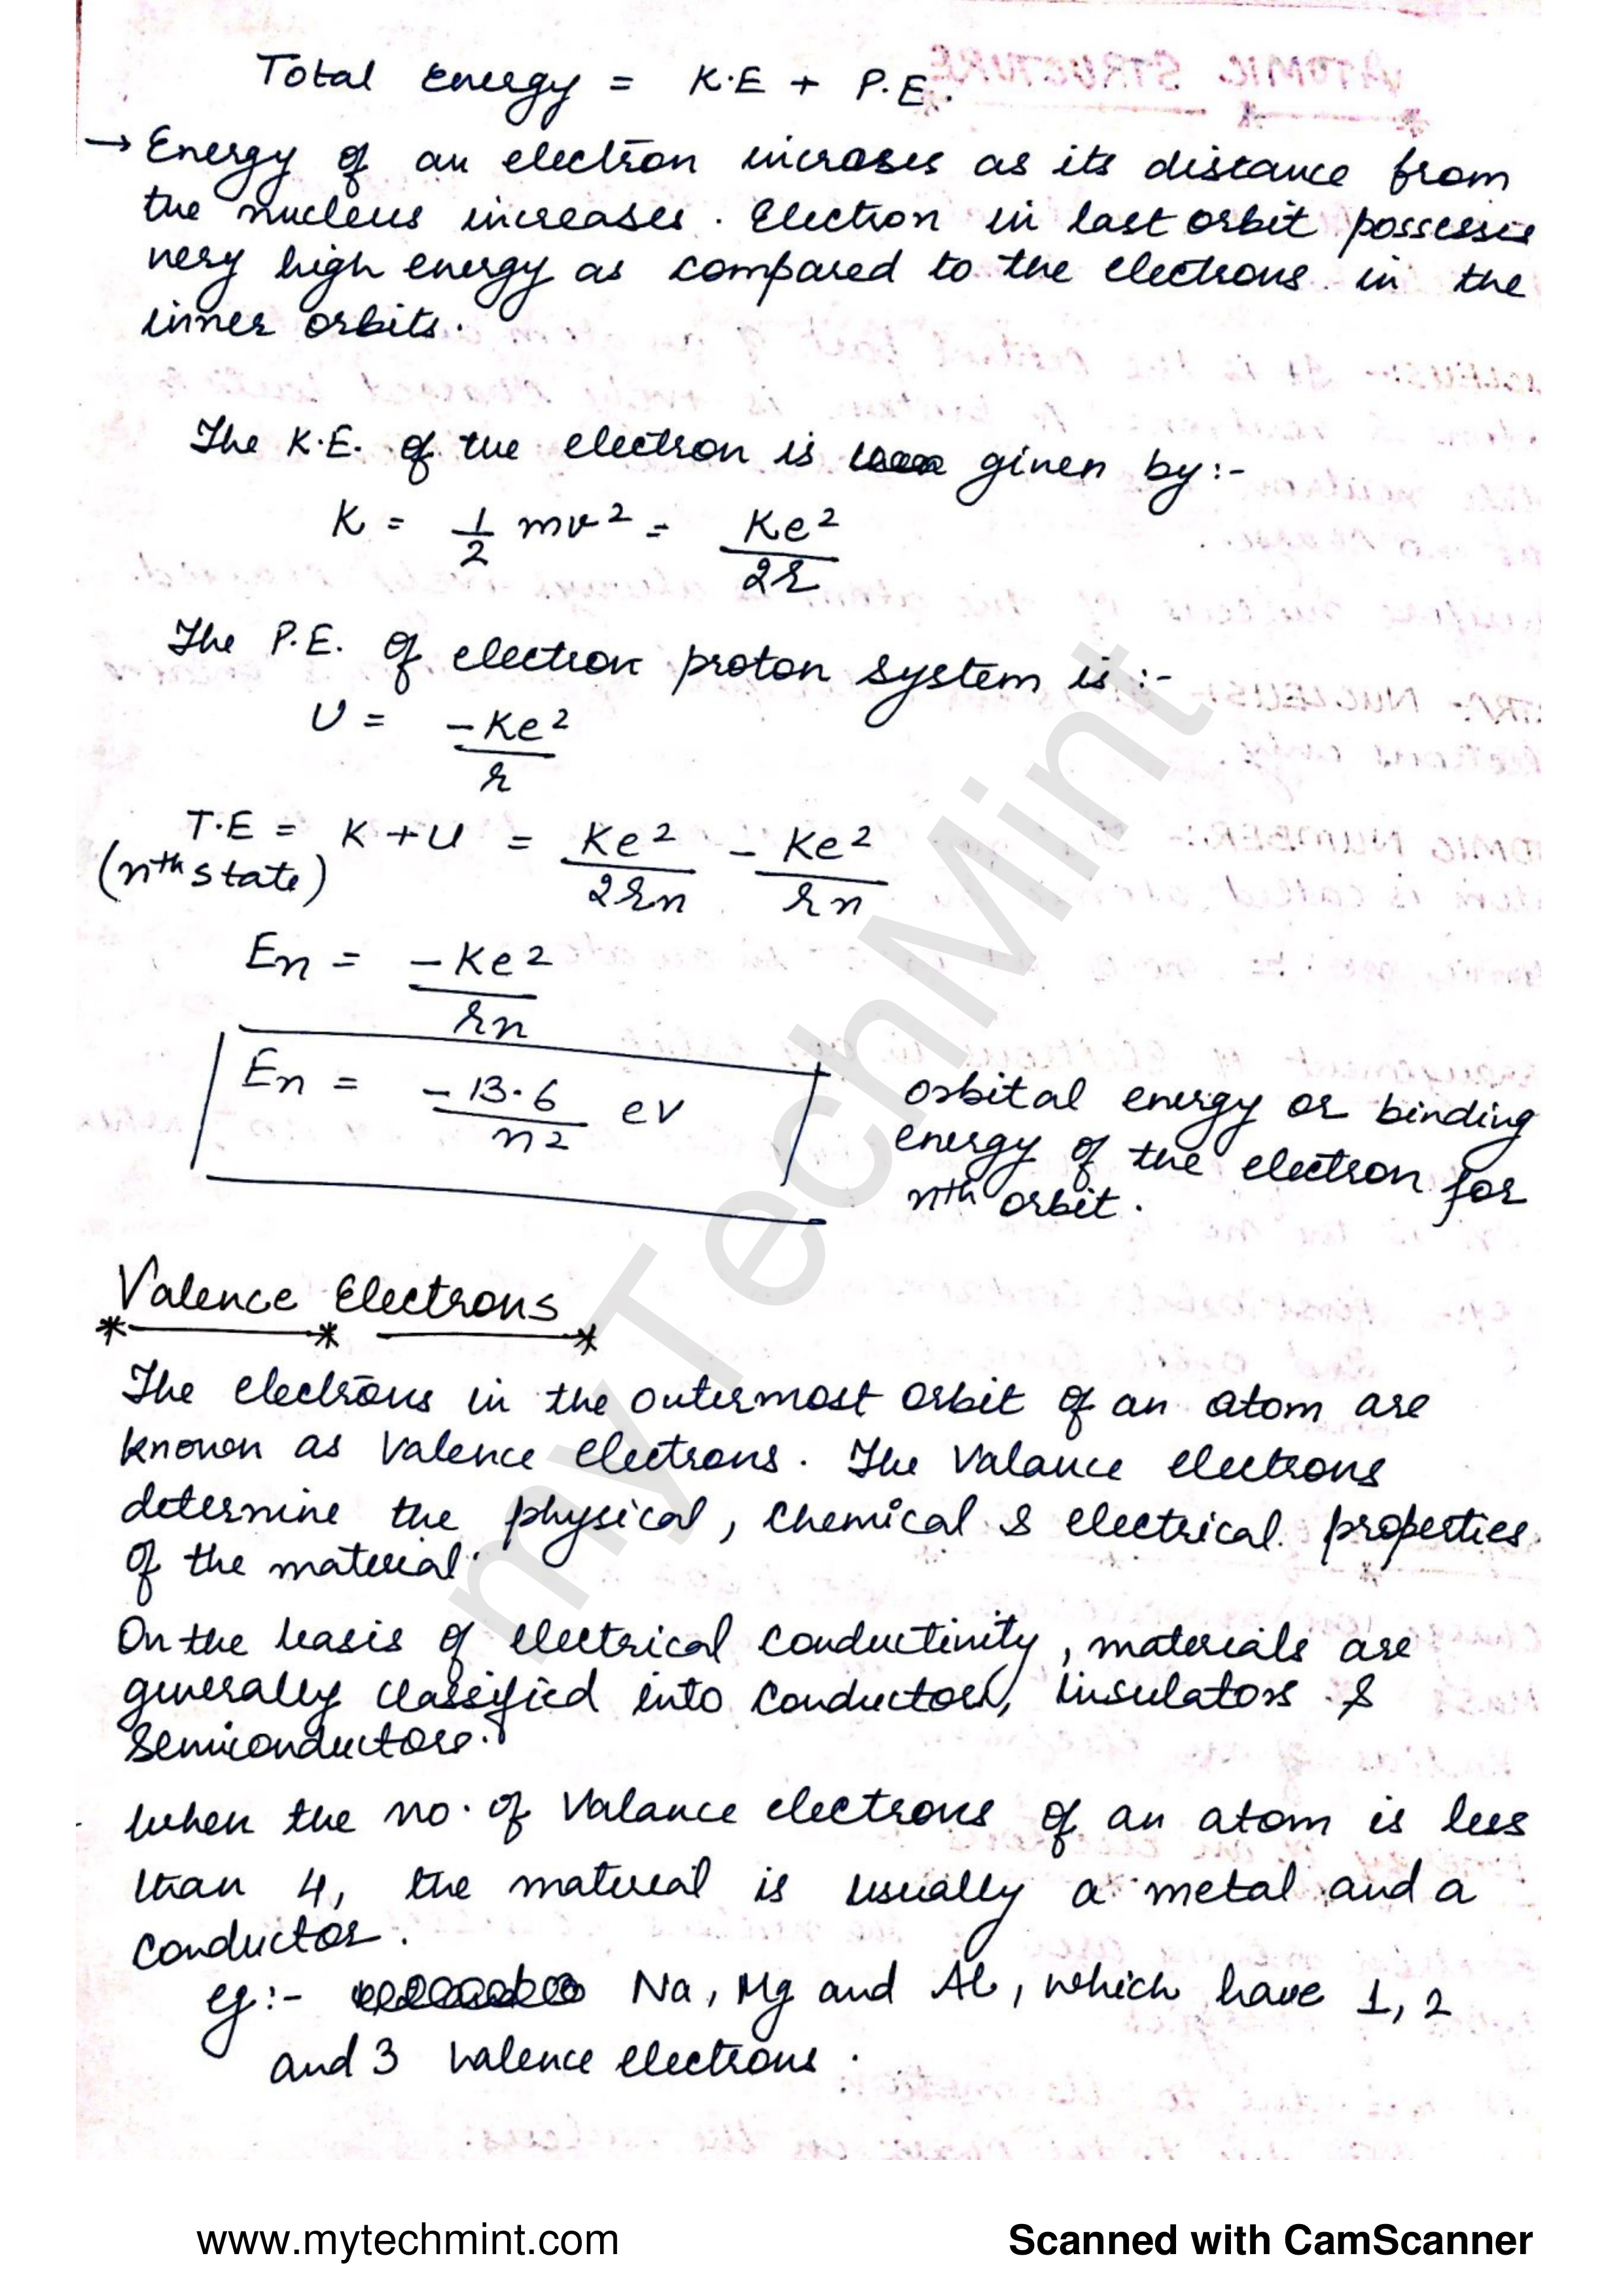 Total Energy = K.E + P.E.
→ Energy of an electron incroses as its distance from
the nucleus increases. Electron in last orbit possesses
very high energy as compared to the electrons in the
inner orbits.
The K.E. of the electron is given by:-
K = 1/2 mv² = Ke²/2r
The P.E. of electron proton system is :-
U = -Ke²/r
T.E = K + U = Ke²/2rn - Ke²/rn
(nth state)
En = -Ke²/rn
En = -13.6/n² ev
orbital energy or binding
energy of the electron for
nth orbit.
Valence Electrons
The electrons in the outermost orbit of an atom are
known as Valence electrons. The Valance electrons
determine the physical, chemical & electrical properties
of the material.
On the basis of electrical conductivity, materials are
generally classified into conductors, insulators &
Semiconductors.
When the no. of Valance electrons of an atom is less
than 4, the material is usually a metal and a
conductor.
eg:- Na, Mg and Al, which have 1, 2
and 3 valence electrons.
myTechMint
www.mytechmint.com
Scanned with CamScanner